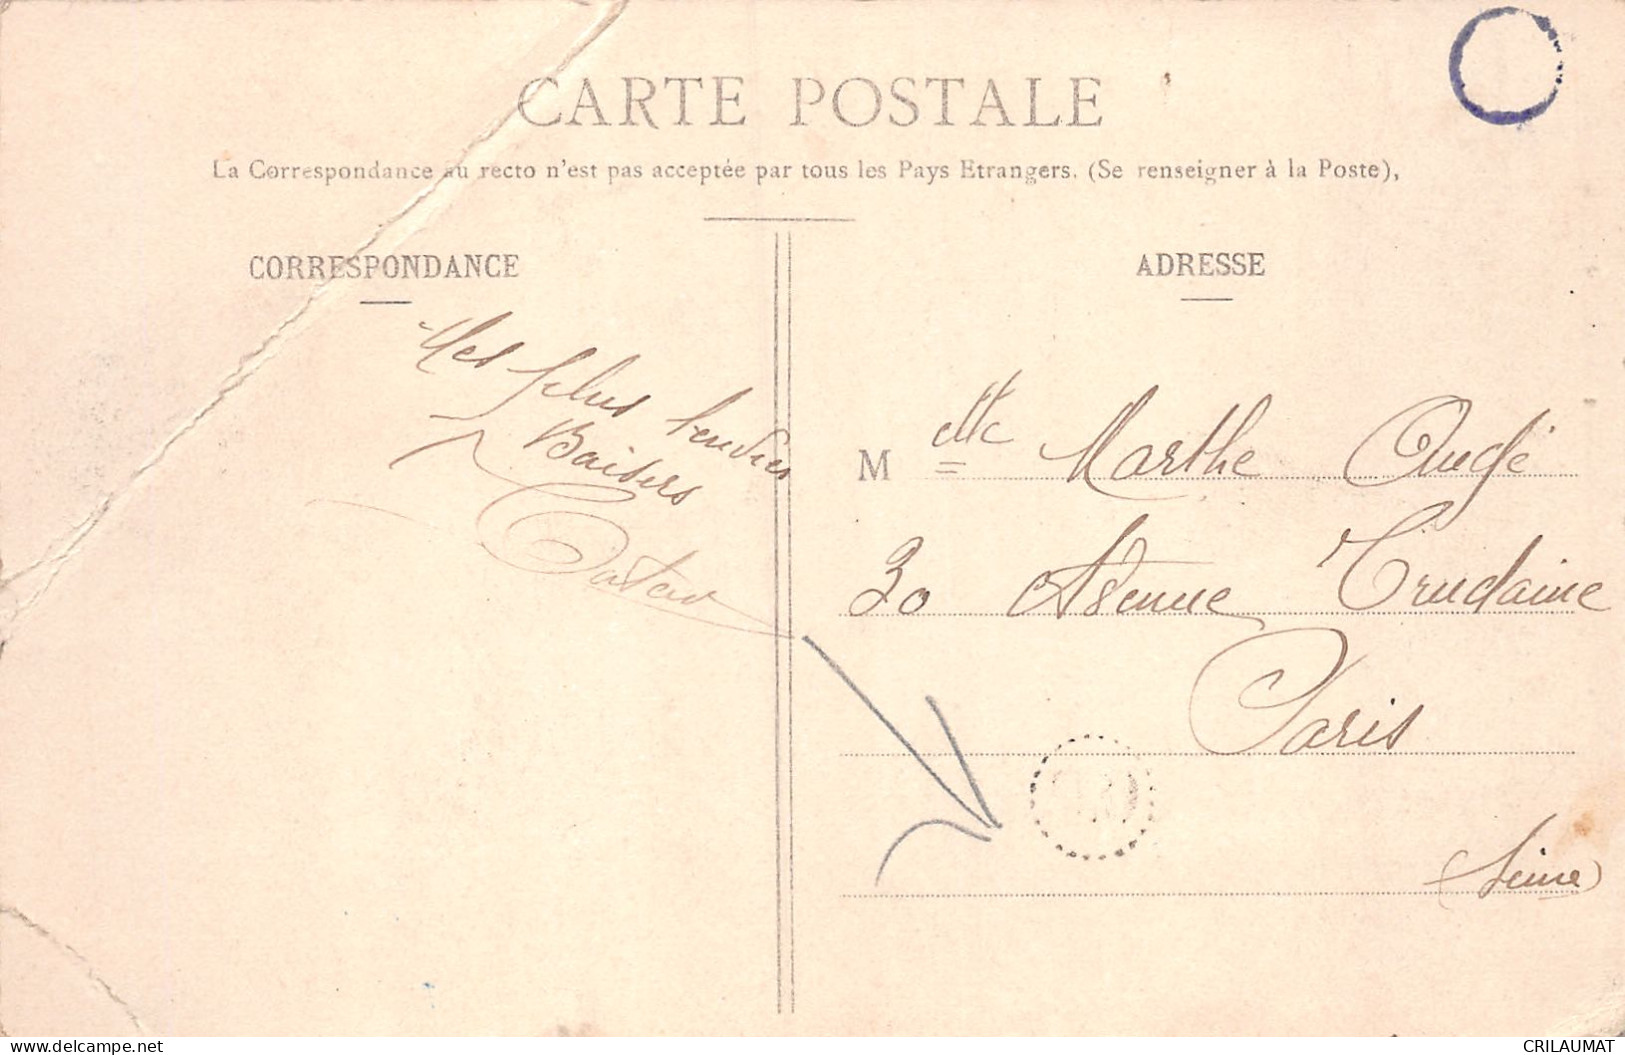 CARTE POSTALE
La Correspondance au recto n'est pas acceptée par tous les Pays Etrangers. (Se renseigner à la Poste),
CORRESPONDANCE
Mes plus tendres
Baisers
ADRESSE
M elle Marthe Augé
30 Avenue Trudaine
Paris
(Seine)
CRILAUMAT